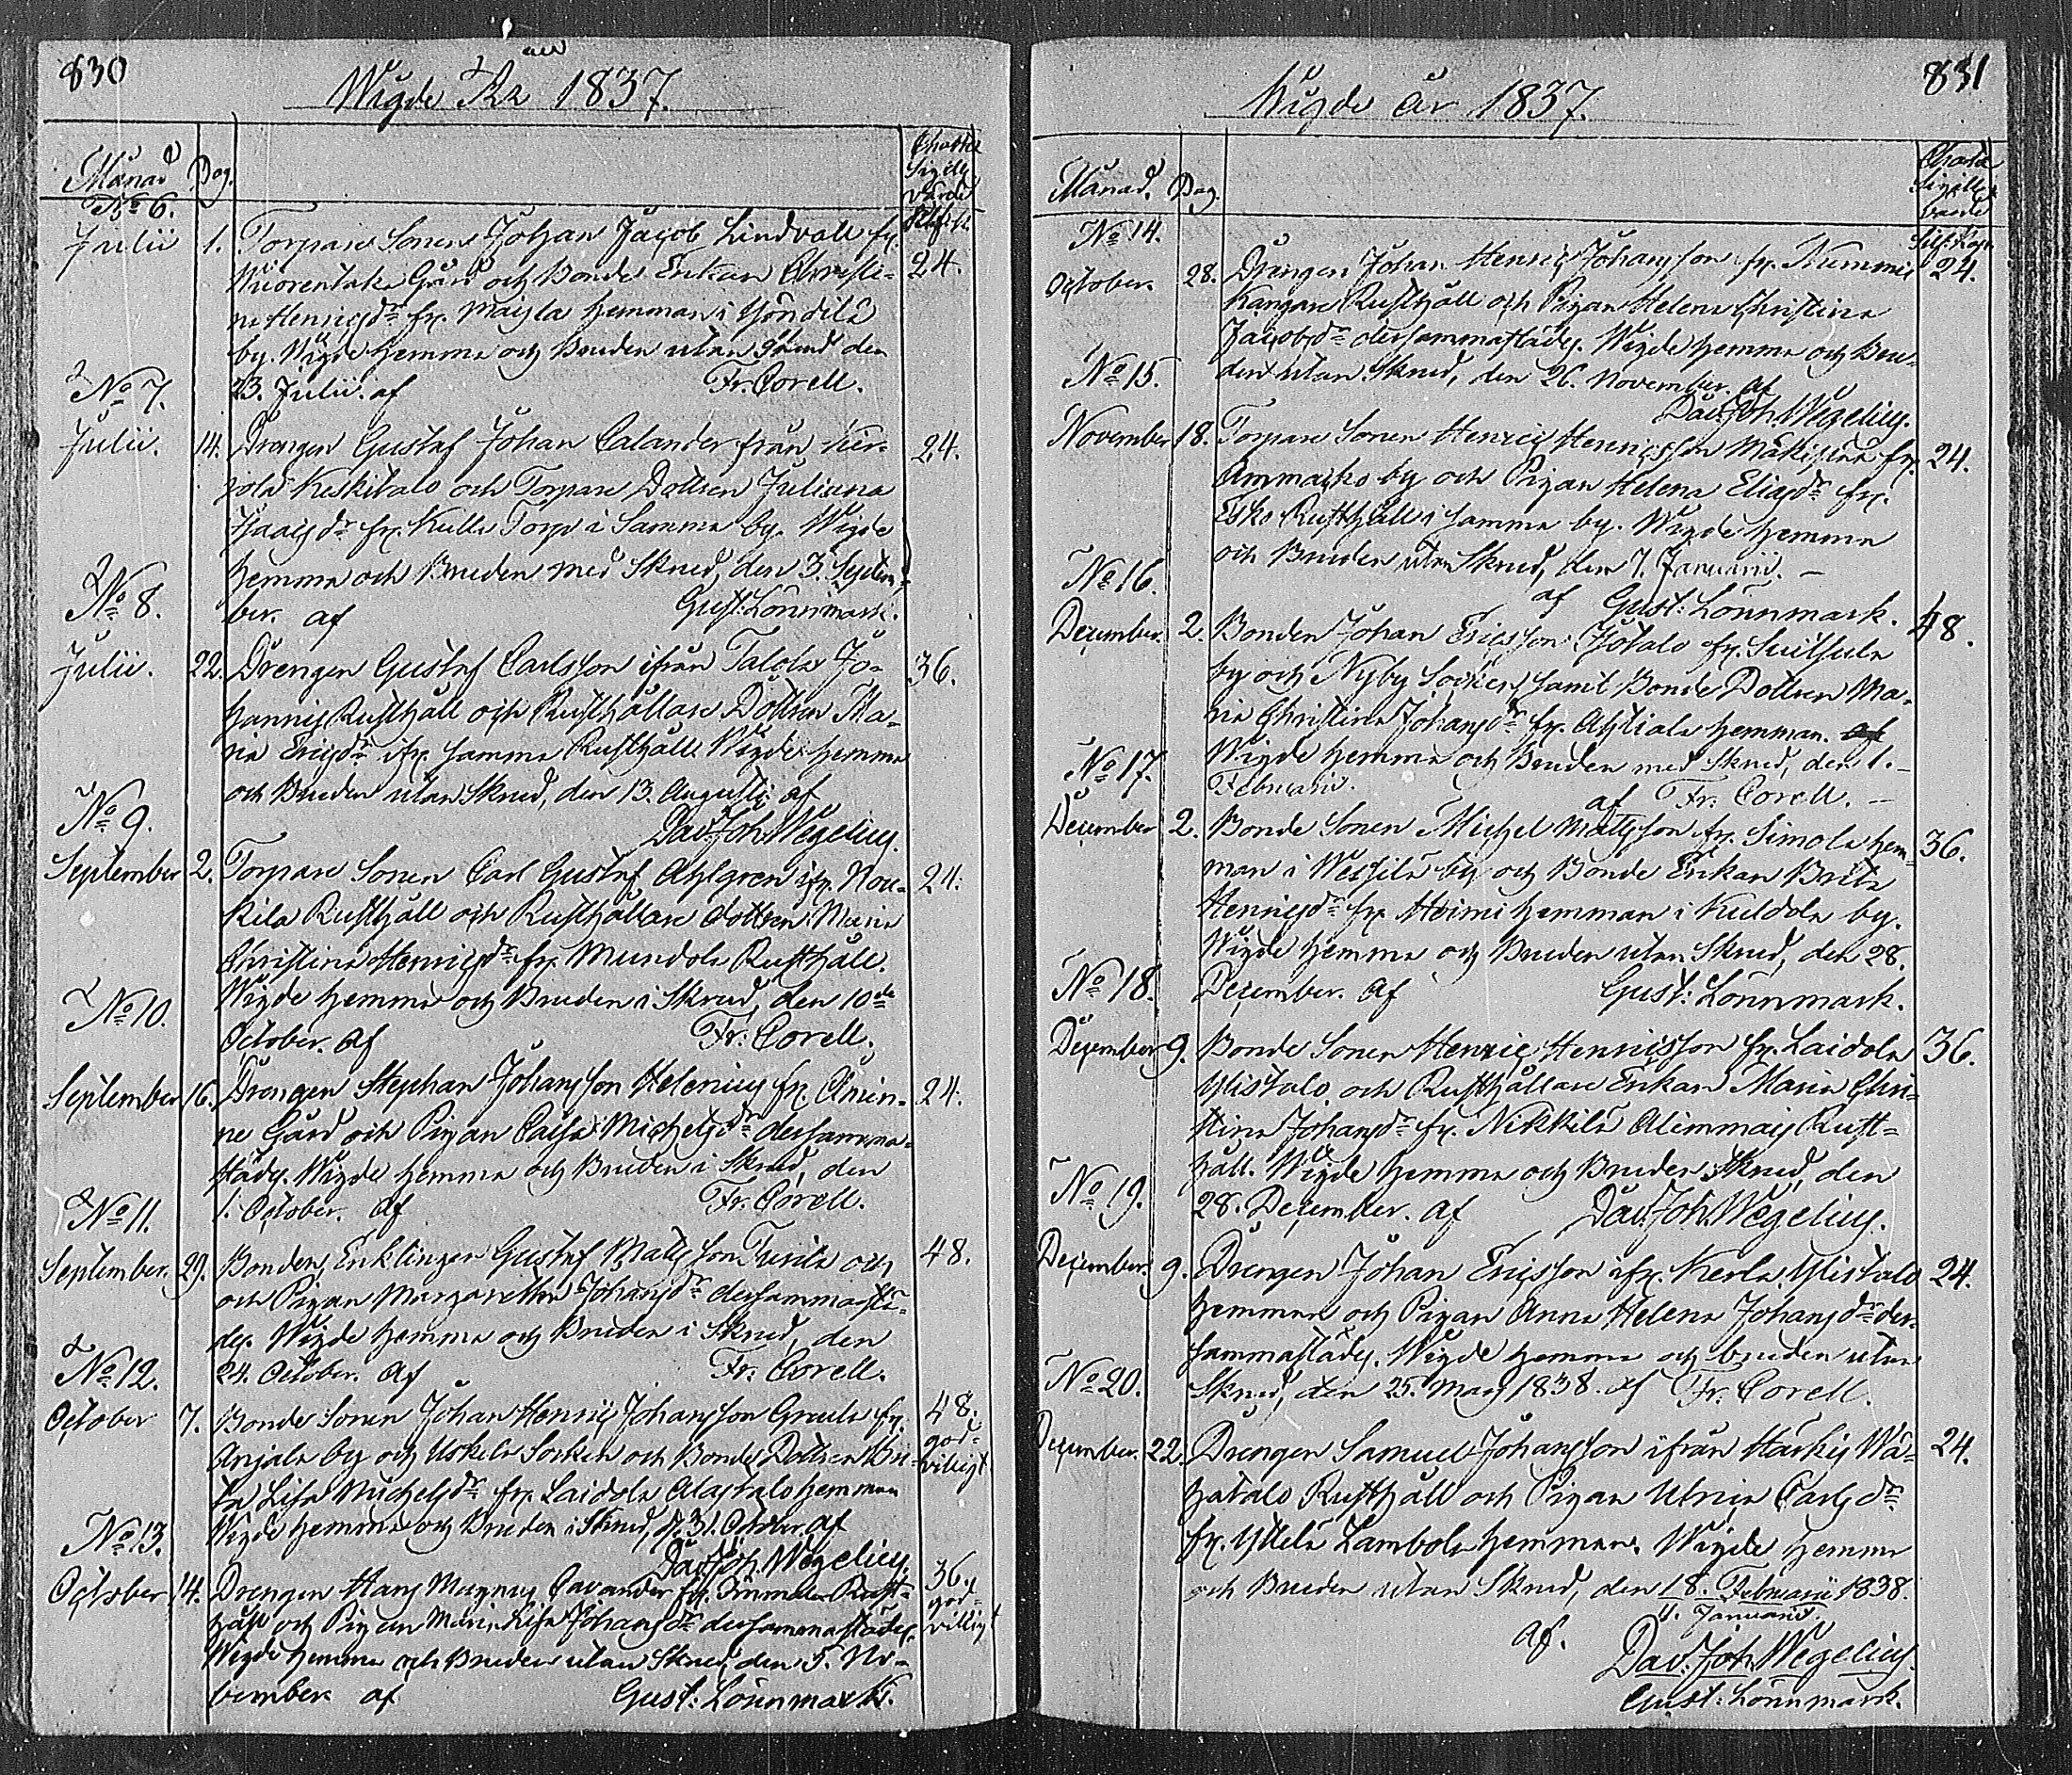 830
Wigde År 1837.
Månad Dag. Charta Sigill. värde
No 6. Silf. k.
Julii 1. Torpare Sonen Johan Jacob Lindvall fr. 24.
Wuorentaka Gård och Bonde Enkan Christi-
na Henricsdr fr. Maisla hemman i Höndilä
by. Wigde hemma och Bruden utan skrud den
23. Julii. af Fr. Corell.
No 7.
Julii. 14. Drengen Gustaf Johan Calander från 24.
Keskitalo och Torpare Dottren Juliana
Isaacsdr fr. Kulla Torp i Samma by. Wigde
hemma och Bruden med Skrud, den 3. Septem-
ber. af Gust: Lönnmark.
No 8.
Julii. 22. Drengen Gustaf Carlsson ifrån Talola Jo- 36.
hannis Rusthåll och Rusthållare Dottren Ma-
ria Ericsdr ifr. samma Rusthåll. Wigde hemma
och Bruden utan Skrud, den 13. Augusti af
Dav. Joh. Wegelius.
No 9.
September 2. Torpare Sonen Carl Gustaf Ahlgren ifr. Nou- 24.
kila Rusthåll och Rusthållare dottren Maria
Christina Henricsdr fr. Mundola Rusthåll.
Wigde hemma och Bruden i Skrud, den 10de
October. af Fr: Corell.
No 10.
September 16. Drengen Stephan Johansson Helenius fr. Åmin- 24.
ne Gård och Pigan Caisa Michelsdr dersamma-
städes. Wigde hemma och Bruden i Skrud, den
1. October. af Fr. Corell.
No 11.
September. 29. Bonden, Enklingen Gustaf Mattsson och 48.
och Pigan Margaretha Johansdr dersammastä-
des. Wigde hemma och Bruden i Skrud, den
24. October. af Fr: Corell.
No 12.
October 7. Bonde Sonen Johan Henric Johansson fr. 48.
Anjala by och Uskela Socken och Bonde Dottren Bri- god-
ta Lisa Michelsdr fr. Laidola Alastalo hemman villigt
Wigde hemma och Bruden i Skrud, d. 31. October. af
Dav. Joh. Wegelius.
No 13.
October 14. Drengen Hans Magnus Cavander fr. Immala Rust- 36.
håll och Pigan Maria Lisa Johansdr dersammastädes. god-
Wigde hemma och Bruden utan Skrud, den 5. No- villigt
vember af Gust: Lönnmark.
831
Wigde år 1837.
Månad. Dag. Charta Sigill. värde
No 14. Silf. Kop.
October. 28. Drengen Johan Henric Johansson fr. Nummis 24.
Kangare Rusthåll och Pigan Helena Christina
Jacobsdr dersammastädes. Wigde hemma och Bru-
den utan Skrud, den 26. November. af
Dav. Joh. Wegelius.
No 15.
November 18. Torpare Sonen Henric Henricsson fr. 24.
Ammasko by och Pigan Helena Eliasdr fr.
Esko Rusthåll i samma by. Wigde hemma
och Bruden utan Skrud, den 7. Januarii. –
af Gust: Lönnmark.
No 16.
December. 2. Bonden Johan Ericsson fr. Suitsula 48.
by och Nyby Socken samt Bonde Dottren Ma-
ria Christina Johansdr fr. Ahtiala hemman. af
Wigde hemma och Bruden med Skrud, den 1. –
Februarii. af Fr: Corell. –
No 17.
December 2. Bonde Sonen Michel Mattsson ifr. Simola hem- 36.
man i Wessilä by och Bonde Enkan Brita
Henricsdr fr. Heimi hemman i Kuldola by.
Wigde hemma och Bruden utan Skrud, den 28.
December. af Gust: Lönnmark.
No 18.
December 9. Bonde Sonen Henric Henricsson fr. Laidola 36.
Ylistalo, och Rusthållare Enkan Maria Chri-
stina Johansdr fr. Nikkilä Alimmais Rust-
håll. Wigde hemma och Bruden i Skrud, den
28. December. af Dav. Joh. Wegelius.
No 19.
December. 9. Drengen Johan Ericsson ifr. Kerla Ylistalo 24.
hemman och Pigan Anna Helena Johansdr der-
sammastädes. Wigde hemma och bruden utan
Skrud, den 25. Mars 1838. af Fr. Corell.
No 20.
December. 22. Drengen Samuel Johansson ifrån Härkis Wä- 24.
hätalo Rusthåll och Pigan Ulrica Carlsdr
fr. Yttelä Lambola hemman. Wigde hemma
och Bruden utan Skrud, den 18. Februarii 1838.
11. Januarii.
af. Dav. Joh. Wegelius.
Gust: Lönnmark.